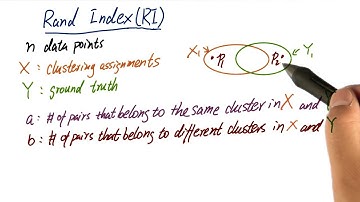 Rand Index (RI)
n data points
X : clustering assignments
Y : ground truth
a : # of pairs that belong to the same cluster in X and
b : # of pairs that belong to different clusters in X and Y
X₁
P₁
P₂
Y₁